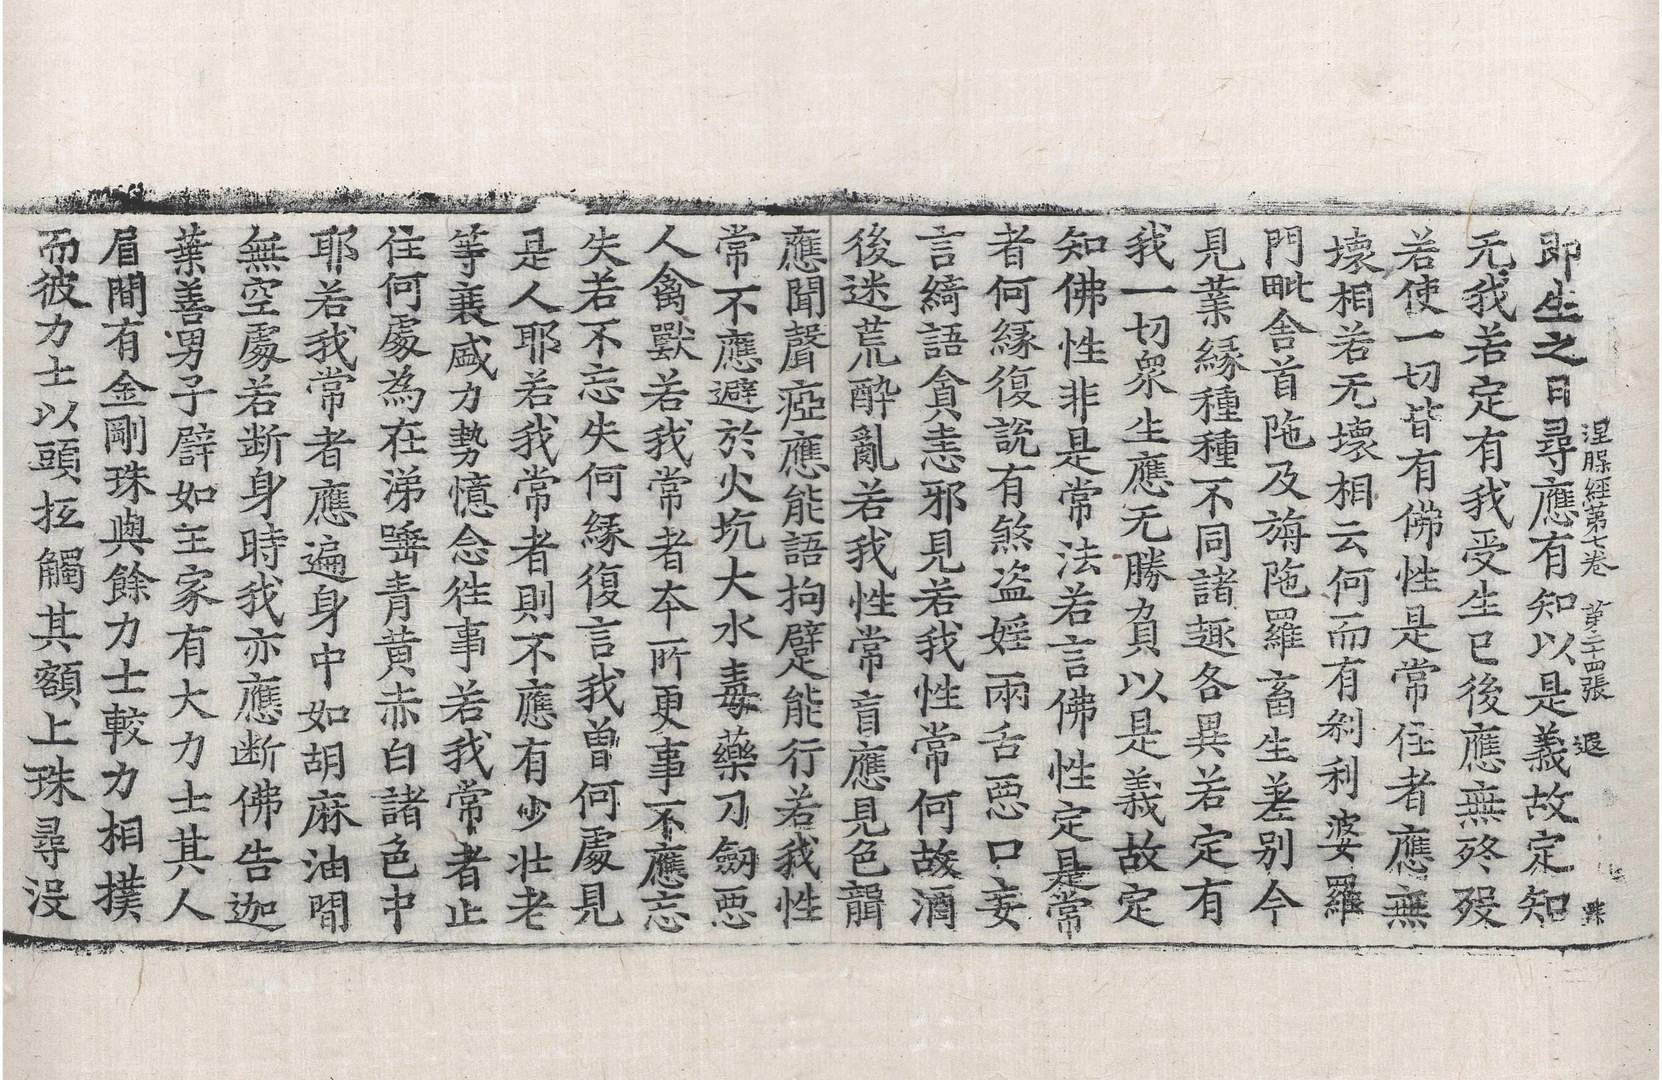 涅槃經第七卷　第二十四張　遐
即生之日尋應有知以是義故定知
无我若定有我受生已後應無終歿
若使一切皆有佛性是常住者應無
壞相若无壞相云何而有剎利婆羅
門毗舍首陁及旃陁羅畜生差別今
見業緣種種不同諸趣各異若定有
我一切衆生應无勝負以是義故定
知佛性非是常法若言佛性定是常
者何緣復說有煞盗婬兩舌惡口妄
言綺語貪恚邪見若我性常何故酒
後迷荒醉亂若我性常盲應見色聾
應聞聲瘂應能語拘躄能行若我性
常不應避於火坑大水毒藥刀劒惡
人禽獸若我常者本所更事不應忘
失若不忘失何緣復言我曽何處見
是人耶若我常者則不應有少壯老
等衰盛力勢憶念往事若我常者止
住何處為在涕唾青黃赤白諸色中
耶若我常者應遍身中如胡麻油間
無空處若断身時我亦應断佛告迦
葉善男子譬如王家有大力士其人
眉間有金剛珠與餘力士較力相撲
而彼力士以頭抂觸其額上珠尋没